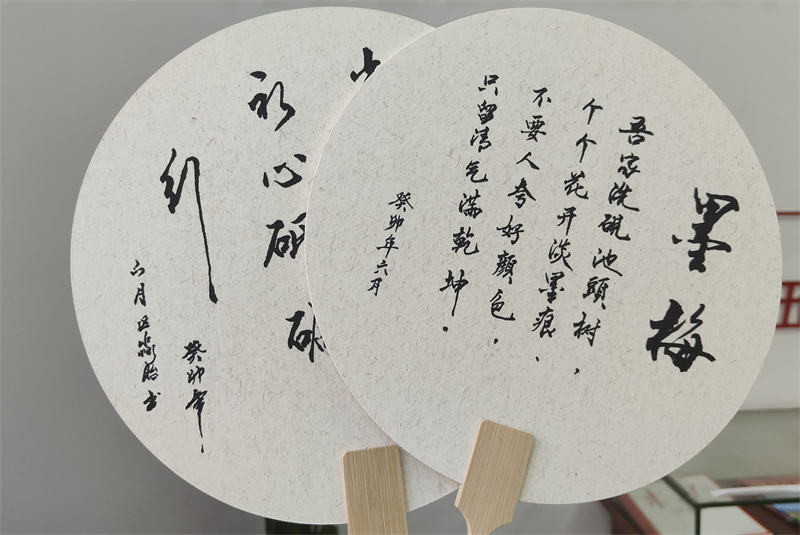 墨梅
吾家洗硯池頭树，
个个花开淡墨痕、
不要人夸好颜色。
只留清气满乾坤。
癸卯年六月
初心砥砺
癸卯年
六月
书